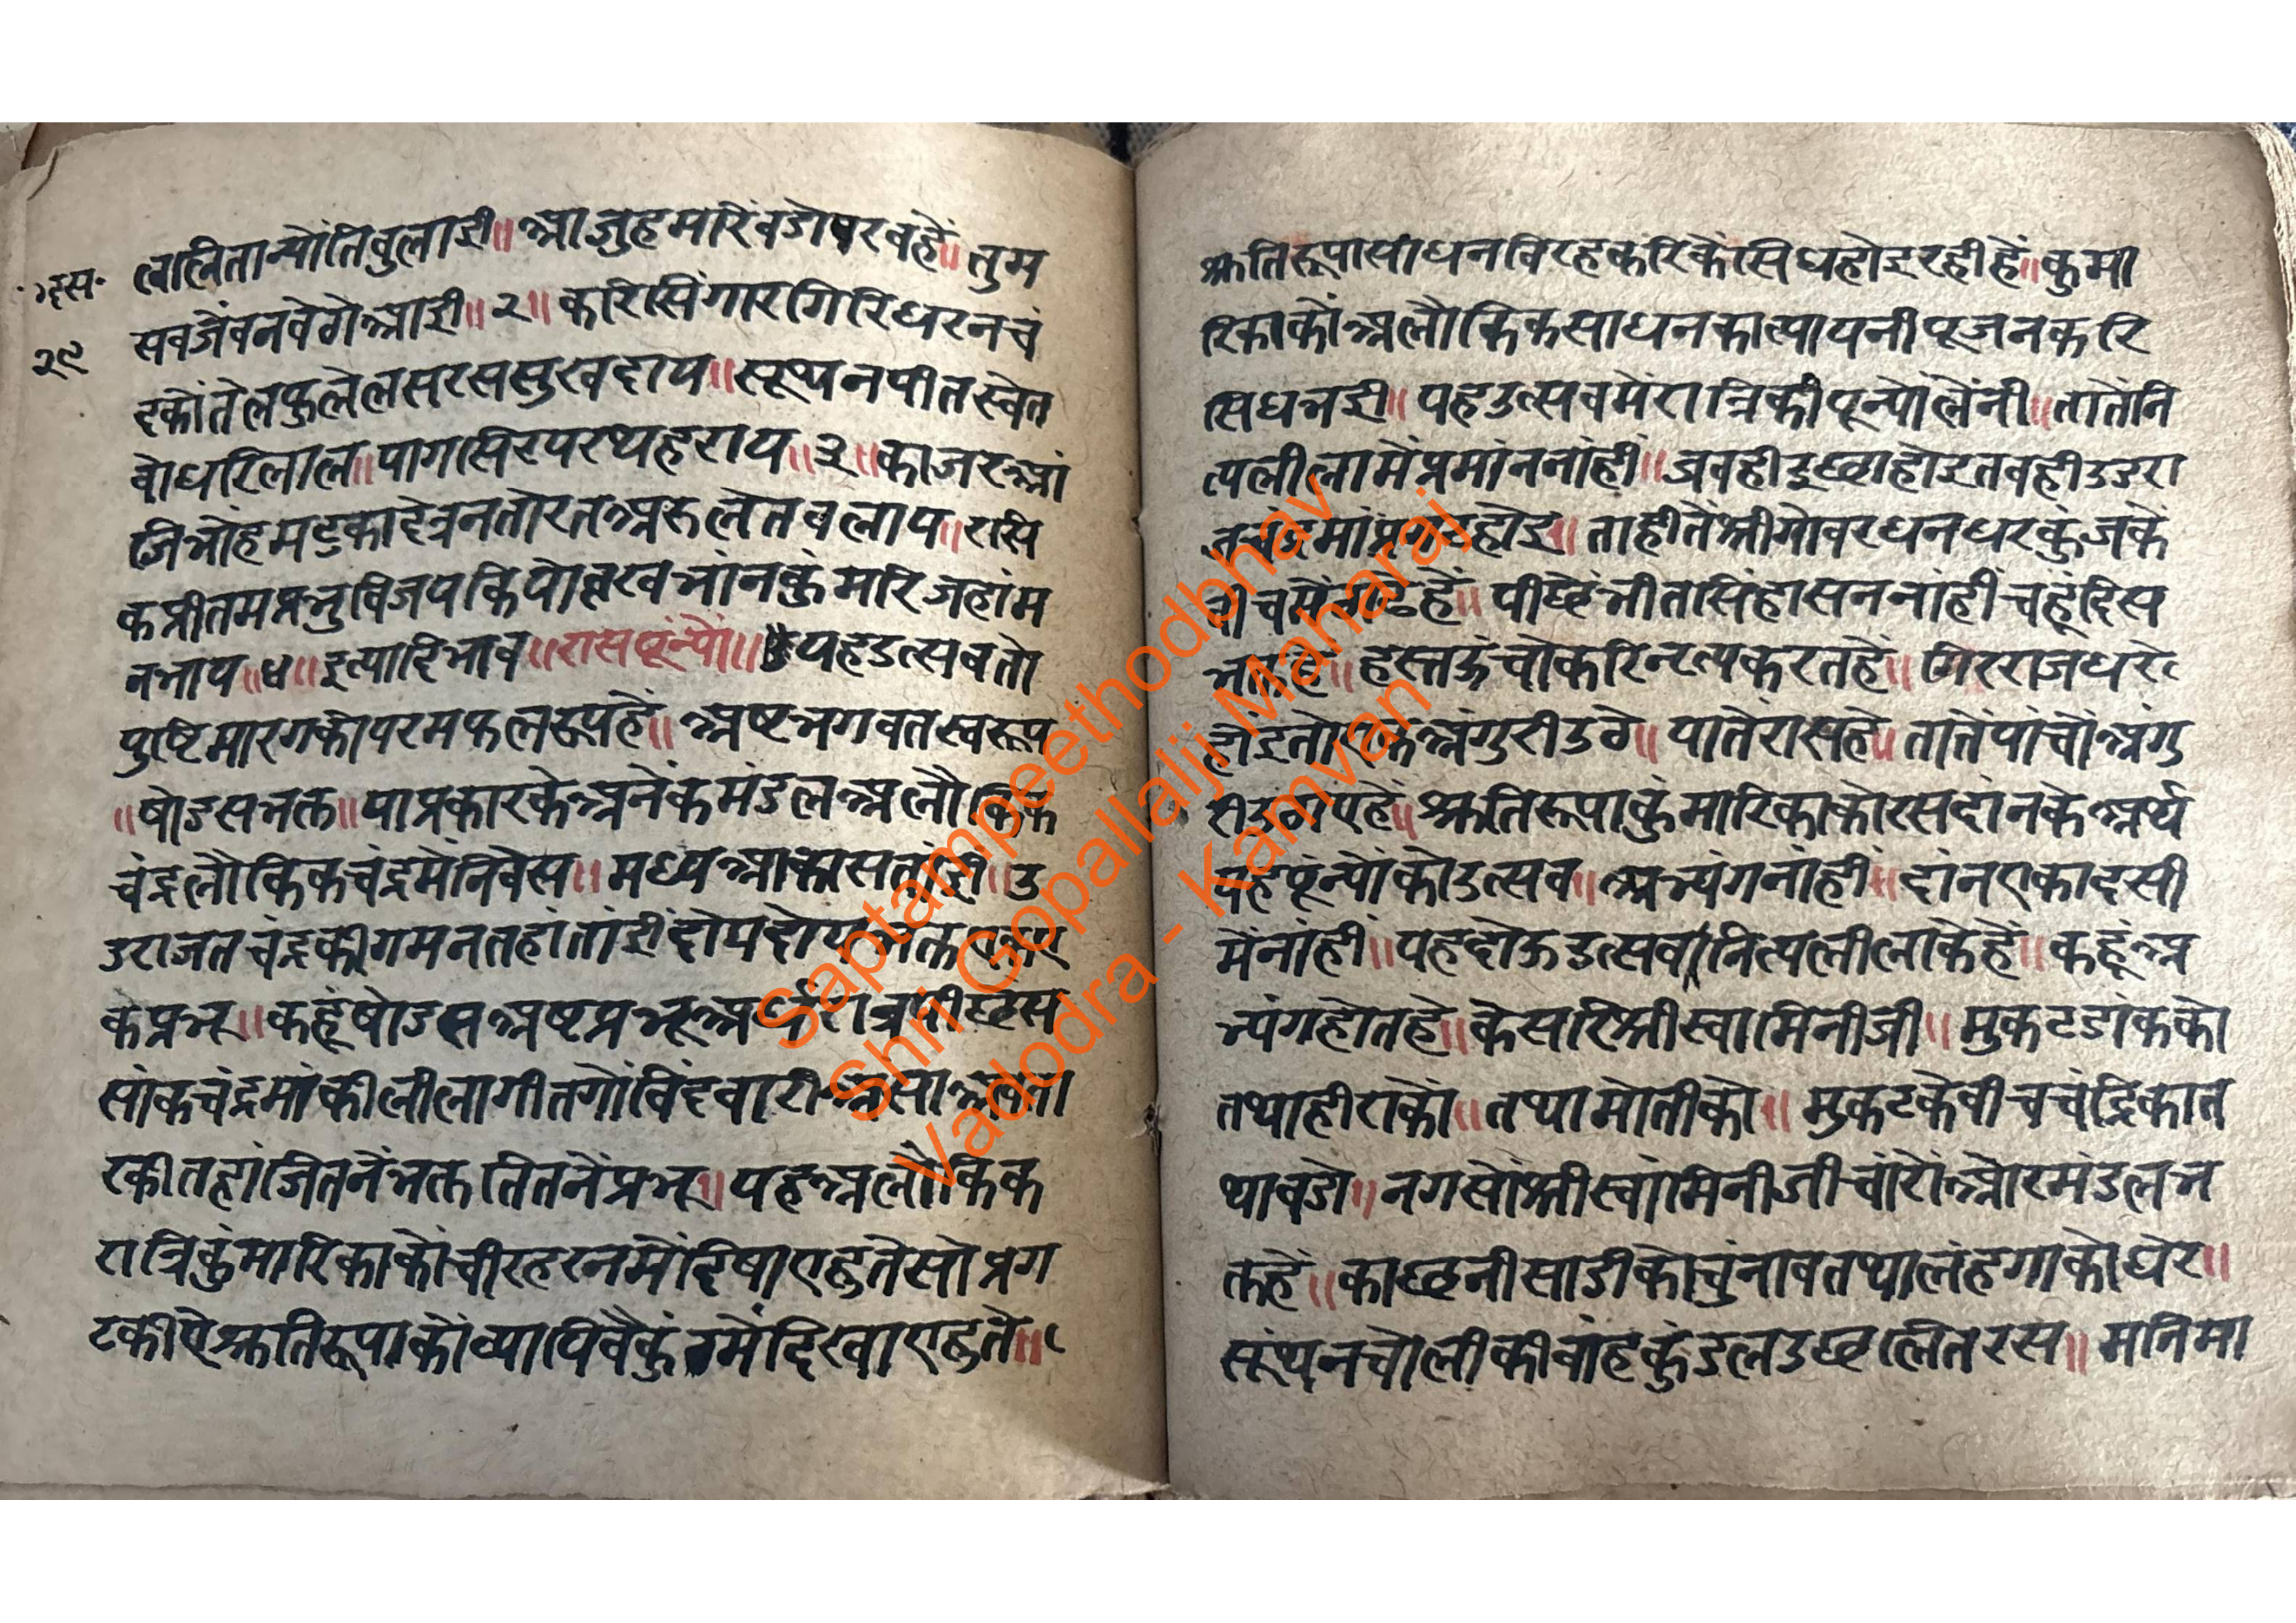 दस॰
२९
लालितान्योंतिबुलाई॥ आजुहमारेंबडोपरवहें॥ तुम
सबजेंवनवेगेआई॥ २॥ करिसिंगारगिरिधरनचं
दकोंतेलफुलेलसरससुखदाय॥ सूथनपीतस्वेत
बोधरिलाल॥ पागसिरपरथहराय॥ ३॥ काजरआं
जिभोंहमटुकादेत्रनतोरतअरुलेतबलाय॥ रसि
कप्रीतमप्रभुविजयकियोब्रखभांनकुंमारिजहांम
नभाय॥ ४॥ इत्यादिभाव॥ रासपून्यों॥ यहउत्सवतो
पुष्टिमारगकोपरमफलरूपहें॥ अष्टभगवतस्वरूप
॥ षोडसभक्त॥ याप्रकारकेअनेंकमंडलअलौकिक
चंद्रलौकिकचंद्रमेंनिवेस॥ मध्यआकासतांई॥ उ
डराजतचंद्रकीगमनतहांतांईदोयदोयभक्त
केप्रभू॥ कहूंषोडसअष्टप्रभू
सांकचंद्रमांकीलीलागीतगोविंदवारी
रकीतहांजितनेंभक्ततितनेंप्रभू॥ यहअलौकिक
रात्रिकुंमारिकाकोंचीरहरनमेंदिषाएहुतेसोप्रग
टकीऐश्रुतिरूपाकोंव्यापिवैकुंठमेंदिखाएहुते॥
श्रुतिरूपासाधनविरहकरिकेंसिधहोइरहीहें॥ कुमा
रिकाकोंअलौकिकसाधनकात्यायनीपूजनकरि
सिधभई॥ यहउत्सवमेंरात्रिकीपून्योलेंनी॥ तातेंनि
त्यलीलामेंप्रमांननांहीं॥ जबहीइछाहोइतबहीउडरा
जचंद्रमांप्रगटहोइ॥ ताहीतेंश्रीगोवरधनधरकुंजके
बीचमें हें॥ पीछेंभीतसिंहासननांहींचहूंदिस
भक्तहें॥ हस्तऊंचोकरिनृत्यकरतहें॥ गिरराजधरें
होंइतोएकअंगुरीउठे॥ यातेंरासहे॥ तातेंपांचोंअंगु
रीउठाएहें॥ श्रुतिरूपाकुंमारिकाकोरसदांनकेअर्थ
यहपून्योंकोउत्सव॥ अभ्यंगनांहीं॥ दांनएकादसी
मेंनांहीं॥ यहदोऊउत्सवनित्यलीलाकेहें॥ कहूंअ
भ्यंगहोतहे॥ केसरिश्रीस्वामिनीजी॥ मुकटडांकको
तथाहीराको॥ तथामोतीको॥ मुकटकेबीचचंद्रिकात
थाबडो॥ नगसोंश्रीस्वांमिनीजीचारोंओरमंडलभ
क्तहें॥ काछनीसाडीकोचुंनावतथालंहगाकोघेर॥
सूंथनचोलीकीबांहकुंडलउछलितरस॥ मनिमा
Saptampeethodbhav
Shri Gopallalji Maharaj
Vadodra - Kamvan